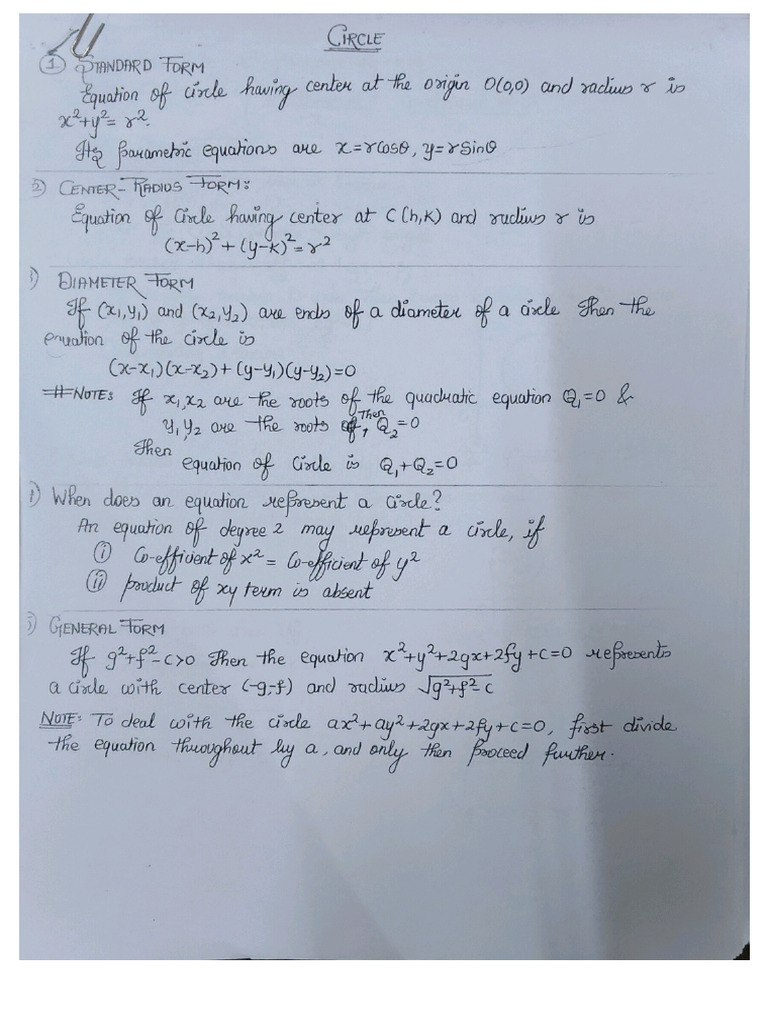 CIRCLE
① STANDARD FORM
Equation of circle having center at the origin O(0,0) and radius r is
x²+y²= r².
Its parametric equations are x=rcosθ, y=rsinθ
2) CENTER-RADIUS FORM:
Equation of Circle having center at C(h,K) and radius r is
(x-h)²+(y-k)²=r²
3) DIAMETER FORM
If (x₁,y₁) and (x₂,y₂) are ends of a diameter of a circle then the
equation of the circle is
(x-x₁)(x-x₂)+(y-y₁)(y-y₂)=0
# NOTES: If x₁,x₂ are the roots of the quadratic equation Q₁=0 &
y₁,y₂ are the roots of, Then Q₂=0
Then
equation of Circle is Q₁+Q₂=0
) When does an equation represent a circle?
An equation of degree 2 may represent a circle, if
(i) Co-efficient of x² = Co-efficient of y²
(ii) product of xy term is absent
) GENERAL FORM
If g²+f²-c>0 then the equation x²+y²+2gx+2fy+c=0 represents
a circle with center (-g,-f) and radius √g²+f²-c
NOTE: To deal with the circle ax²+ay²+2gx+2fy+c=0, first divide
the equation throughout by a, and only then proceed further.